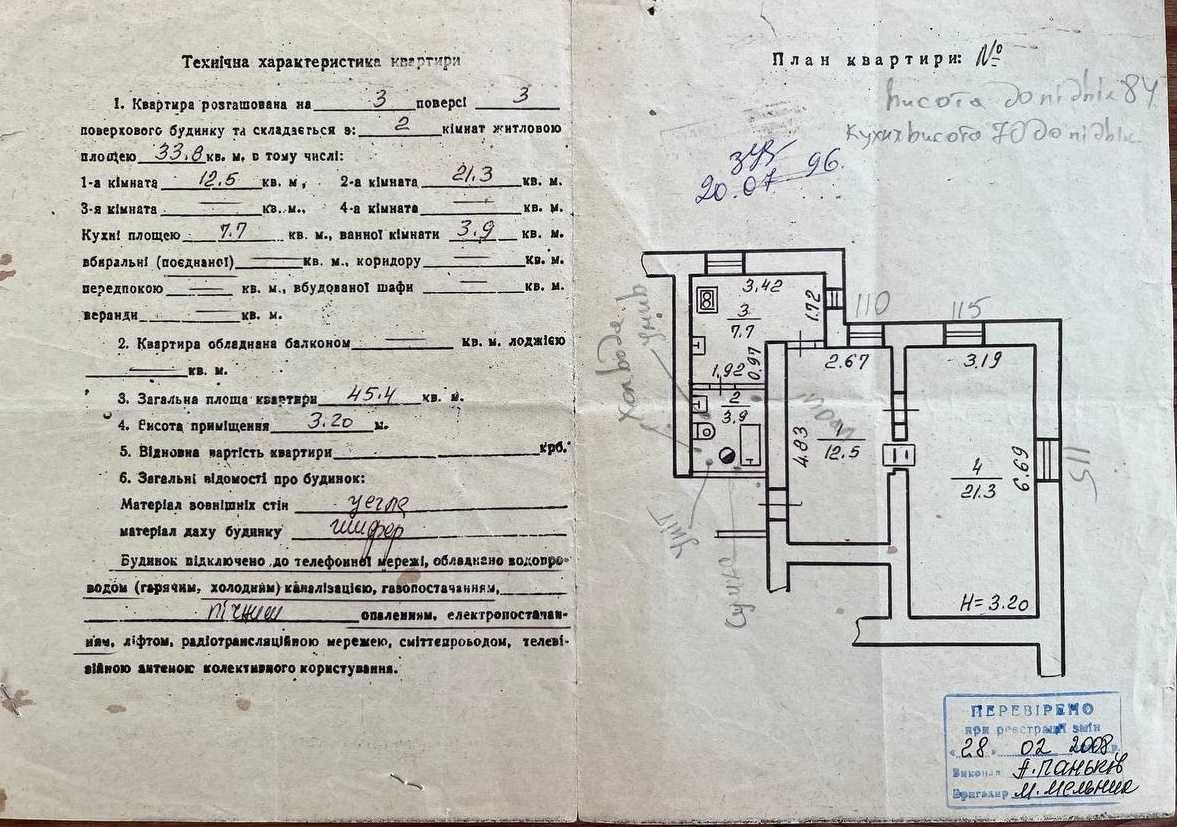 Технічна характеристика квартири
1. Квартира розташована на 3 поверсі 3
поверхового будинку та складається з: 2 кімнат житловою
площею 33.8 кв. м. в тому числі:
1-а кімната 12.5 кв. м, 2-а кімната 21.3 кв. м.
3-я кімната — кв. м., 4-а кімната — кв. м.
Кухні площею 7.7 кв. м., ванної кімнати 3.9 кв. м.
вбиральні (поєднаної) — кв. м., коридору — кв. м.
передпокою — кв. м., вбудованої шафи — кв. м.
веранди — кв. м.
2. Квартира обладнана балконом — кв. м. лоджією
— кв. м.
3. Загальна площа квартири 45.4 кв. м.
4. Висота приміщення 3.20 м.
5. Відновна вартість квартири крб.
6. Загальні відомості про будинок:
Матеріал зовнішніх стін цегла
матеріал даху будинку шифер
Будинок підключено до телефонної мережі, обладнано водопро-
водом (гарячим, холодним) каналізацією, газопостачанням,
пічним опаленням, електропостачан-
ням, ліфтом, радіотрансляційною мережею, сміттєпроводом, телеві-
зійною антеною колективного користування.
План квартири: №
висота до підвік 84
кухня висота 70 до підвік
20.07 96.
3.42
3
7.7
1.72
110
115
хол вода
умив
1.92
0.97
2.67
3.19
2
3.9
4.83
1
12.5
4
21.3
6.69
115
уніт
сушка
H=3.20
ПЕРЕВІРЕНО
при реєстрації змін
"28" 02 2008 р.
Виконав А. Паньків
Бригадир М. Мельник